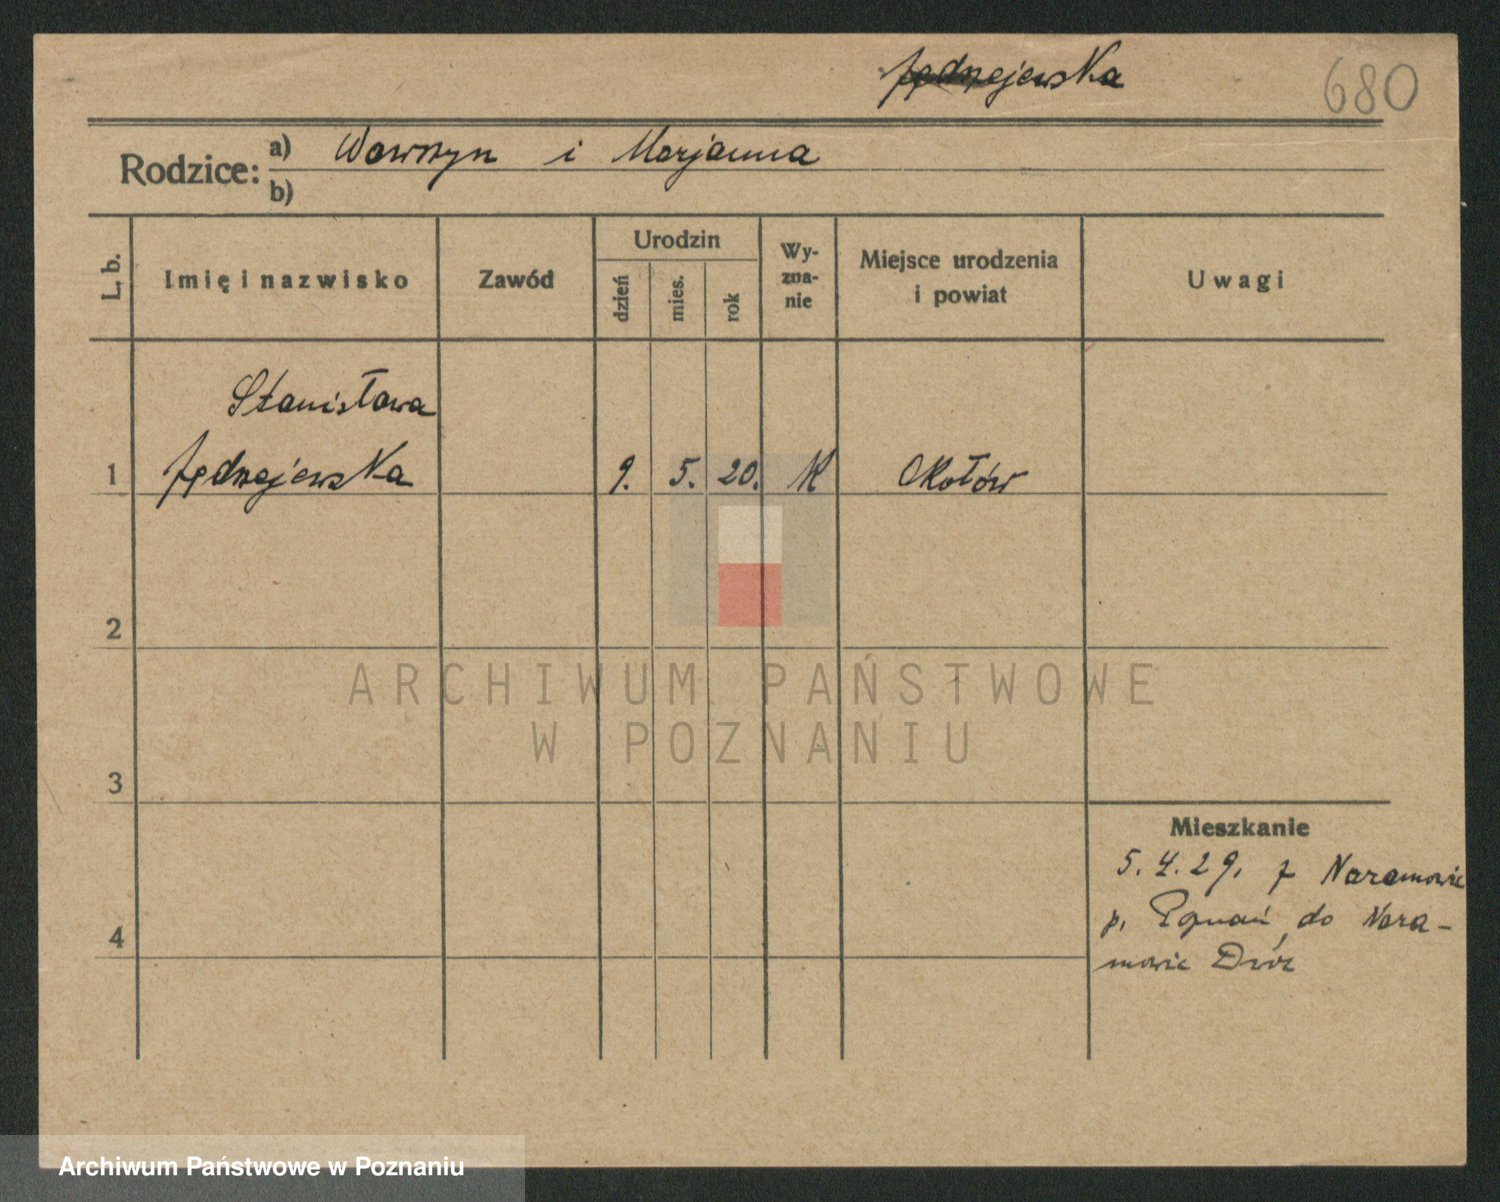 Jędrzejewska
680
Rodzice: a) Wawrzyn i Marjanna
b)
L. b.
Imię i nazwisko
Zawód
Urodzin
dzień
mies.
rok
Wy-
zna-
nie
Miejsce urodzenia
i powiat
Uwagi
Stanisława
1 Jędrzejewska 9. 5. 20. K Okołów
2
3
4
Mieszkanie
5. 4. 29. z Naramowic
p. Poznań do Nara-
mowic Dwór
ARCHIWUM PAŃSTWOWE
W POZNANIU
Archiwum Państwowe w Poznaniu